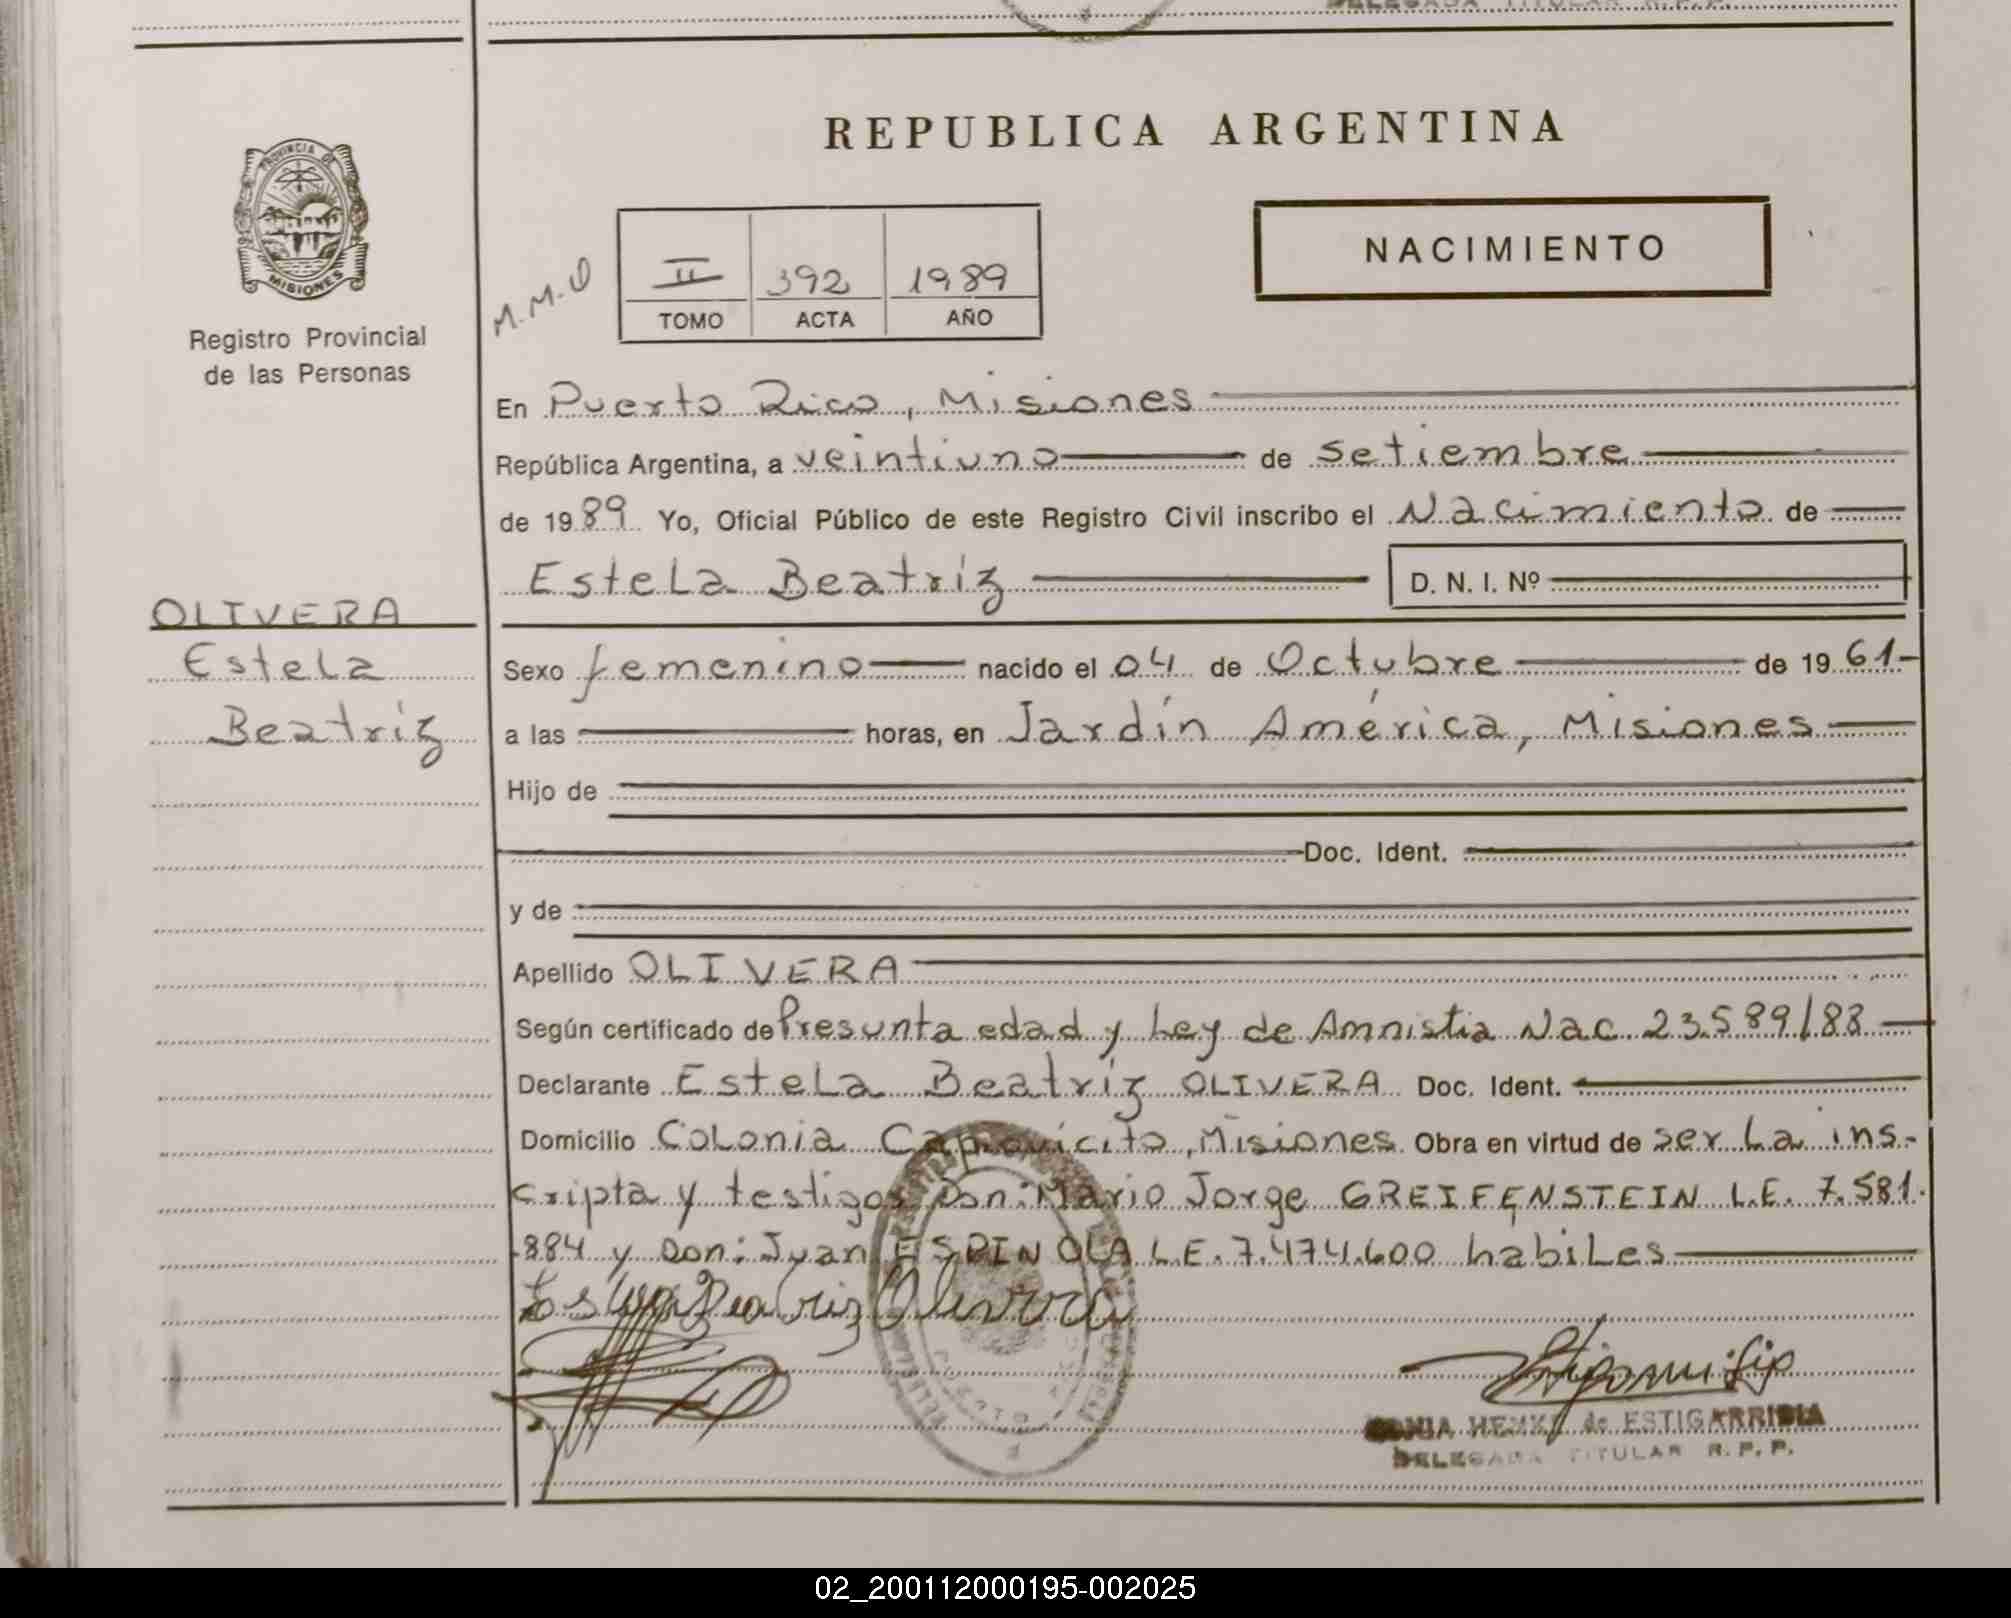 DELEGADA TITULAR R.P.P.
REPUBLICA ARGENTINA
PROVINCIA DE
MISIONES
Registro Provincial
de las Personas
M.M.O
II 392 1989
TOMO ACTA AÑO
NACIMIENTO
En Puerto Rico, Misiones
República Argentina, a veintiuno de setiembre
de 1989 Yo, Oficial Público de este Registro Civil inscribo el Nacimiento de
Estela Beatríz D. N. I. Nº
OLIVERA
Estela
Beatríz
Sexo femenino nacido el 04 de Octubre de 1961-
a las horas, en Jardín América, Misiones
Hijo de
Doc. Ident.
y de
Apellido OLIVERA
Según certificado de Presunta edad y Ley de Amnistia Nac 23.589/88
Declarante Estela Beatríz OLIVERA Doc. Ident.
Domicilio Colonia Capiovícito, Misiones. Obra en virtud de ser la ins-
cripta y testigos Don: Mario Jorge GREIFENSTEIN L.E. 7.581.
884 y Don: Juan ESPINOLA L.E. 7.474.600 habiles
Estela Beatriz Olivera
HEMKE de ESTIGARRIBIA
DELEGADA TITULAR R. P. P.
02_200112000195-002025